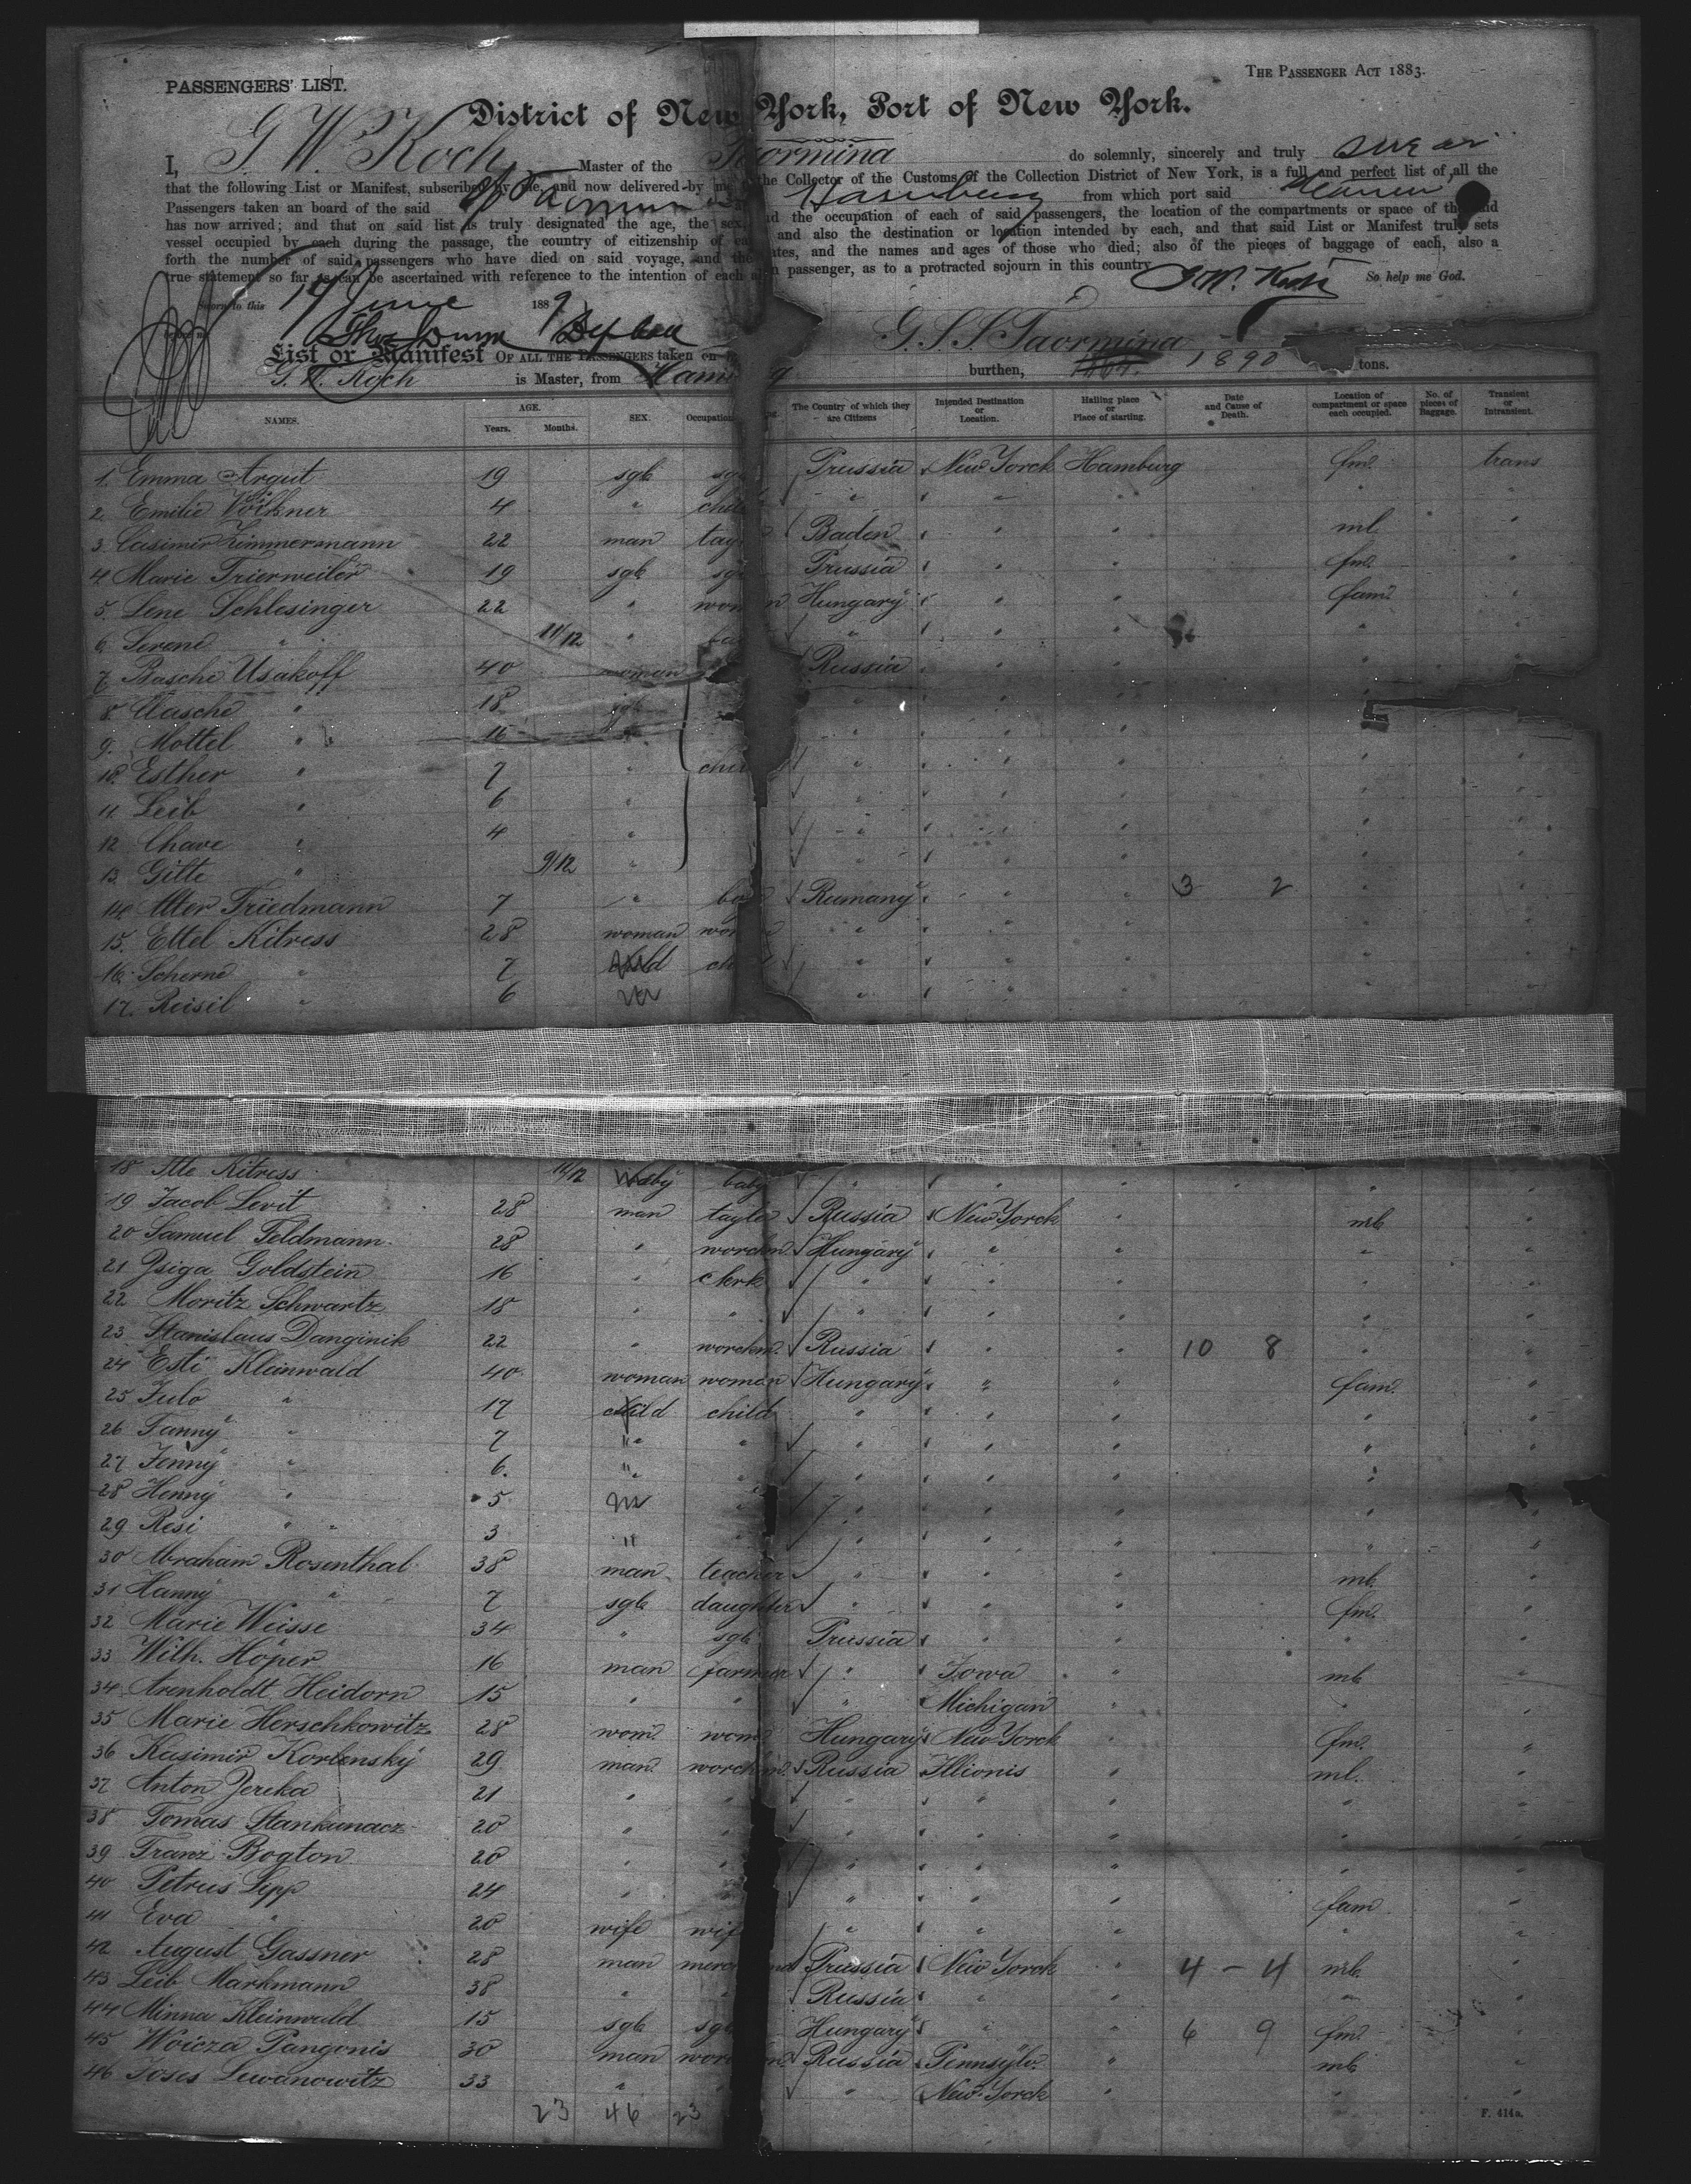 PASSENGERS' LIST.
THE PASSENGER ACT 1883.
District of New York, Port of New York.
I, G. W. Koch Master of the Taormina do solemnly, sincerely and truly swear
that the following List or Manifest, subscribed by me, and now delivered by me the Collector of the Customs of the Collection District of New York, is a full and perfect list of all the
Passengers taken on board of the said Taormina Hamburg from which port said
has now arrived; and that on said list is truly designated the age, the sex, and the occupation of each of said passengers, the location of the compartments or space of the said
vessel occupied by each during the passage, the country of citizenship of and also the destination or location intended by each, and that said List or Manifest truly sets
forth the number of said passengers who have died on said voyage, and the dates, and the names and ages of those who died; also of the pieces of baggage of each, also a
true statement so far as can be ascertained with reference to the intention of each passenger, as to a protracted sojourn in this country
G. W. Koch So help me God.
Sworn to this 14 June 1889
List or Manifest OF ALL THE PASSENGERS taken on G. S. S. Taormina
G. W. Koch is Master, from Hamburg burthen, 1890 tons.
NAMES. AGE. Years. Months. SEX. Occupation The Country of which they are Citizens Intended Destination or Location. Hailing place or Place of starting. Date and Cause of Death. Location of compartment or space each occupied. No. of pieces of Baggage. Transient or Intransient.
1. Emma Argut 19 sgle Prussia New Yorck Hamburg fm. trans
2. Emilie Völkner 4 " child " " " " "
3. Casimir Zimmermann 22 man Baden " " ml. "
4 Marie Trierweiler 19 sgle Prussia " " fm. "
5. Lene Schlesinger 22 " woman Hungary " " fam. "
6 Serene " 11/12 " " " " " "
7 Basche Usakoff 40 woman Russia " " " "
8 Chasche " 18 sgle " " " " "
9. Mottel " 16 " " " " " "
10. Esther " 7 " " " " " "
11. Leib " 6 " " " " " "
12 Chave " 4 " " " " " "
13. Gitte " 9/12 " " " " " "
14 Alter Friedmann 7 " Rumany " " 3 2 " "
15. Ettel Kitress 28 woman woman " " " " "
16. Scherne " 7 child child " " " " "
17. Reisil " 6 " " " " "
18 Itte Kitress 11/12 baby baby " " " " "
19 Jacob Levit 28 man taylor Russia New Yorck " ml. "
20 Samuel Feldmann 28 " worckm. Hungary " " " "
21 Zsiga Goldstein 16 " clerk " " " " "
22 Moritz Schwartz 18 " " " " " " "
23 Stanislaus Danginik 22 " worckm. Russia " " 10 8 " "
24 Esti Kleinwald 40 woman woman Hungary " " fam. "
25 Julo " 17 child child " " " " "
26 Fanny " 7 " " " " " " "
27 Jenny " 6. " " " " " " "
28 Henny " 5 m " " " " " "
29 Resi " " 3 " " " " " " "
30 Abraham Rosenthal 38 man teacher " " " ml. "
31 Hanny " 7 sgle daughter " " " fm. "
32 Marie Weisse 34 " sgle Prussia " " " "
33 Wilh. Höper 16 man farmer " Iowa " ml "
34 Arenholdt Heidorn 15 " " " Michigan " " "
35 Marie Herschkowitz 28 wom. wom. Hungary New Yorck " fm. "
36 Kasimir Korlensky 29 man worckm. Russia Illionis " ml. "
37 Anton Zereka 21 " " " " " " "
38 Tomas Stankunacz 20 " " " " " " "
39 Franz Bogton 20 " " " " " " "
40 Petrus Lipp 24 " " " " fam "
41 Eva " 20 wife wife " " " " "
42 August Gassner 28 man Prussia New Yorck " 4 - 4 ml. "
43 Leib Markmann 38 " " Russia " " " "
44 Minna Kleinwald 15 sgle sgle Hungary " " 6 9 fm. "
45 Woicza Pangonis 30 man Russia Pennsylv. " ml "
46 Joses Lewanowitz 33 " " " New Yorck " " "
23 46 23
F. 414a.